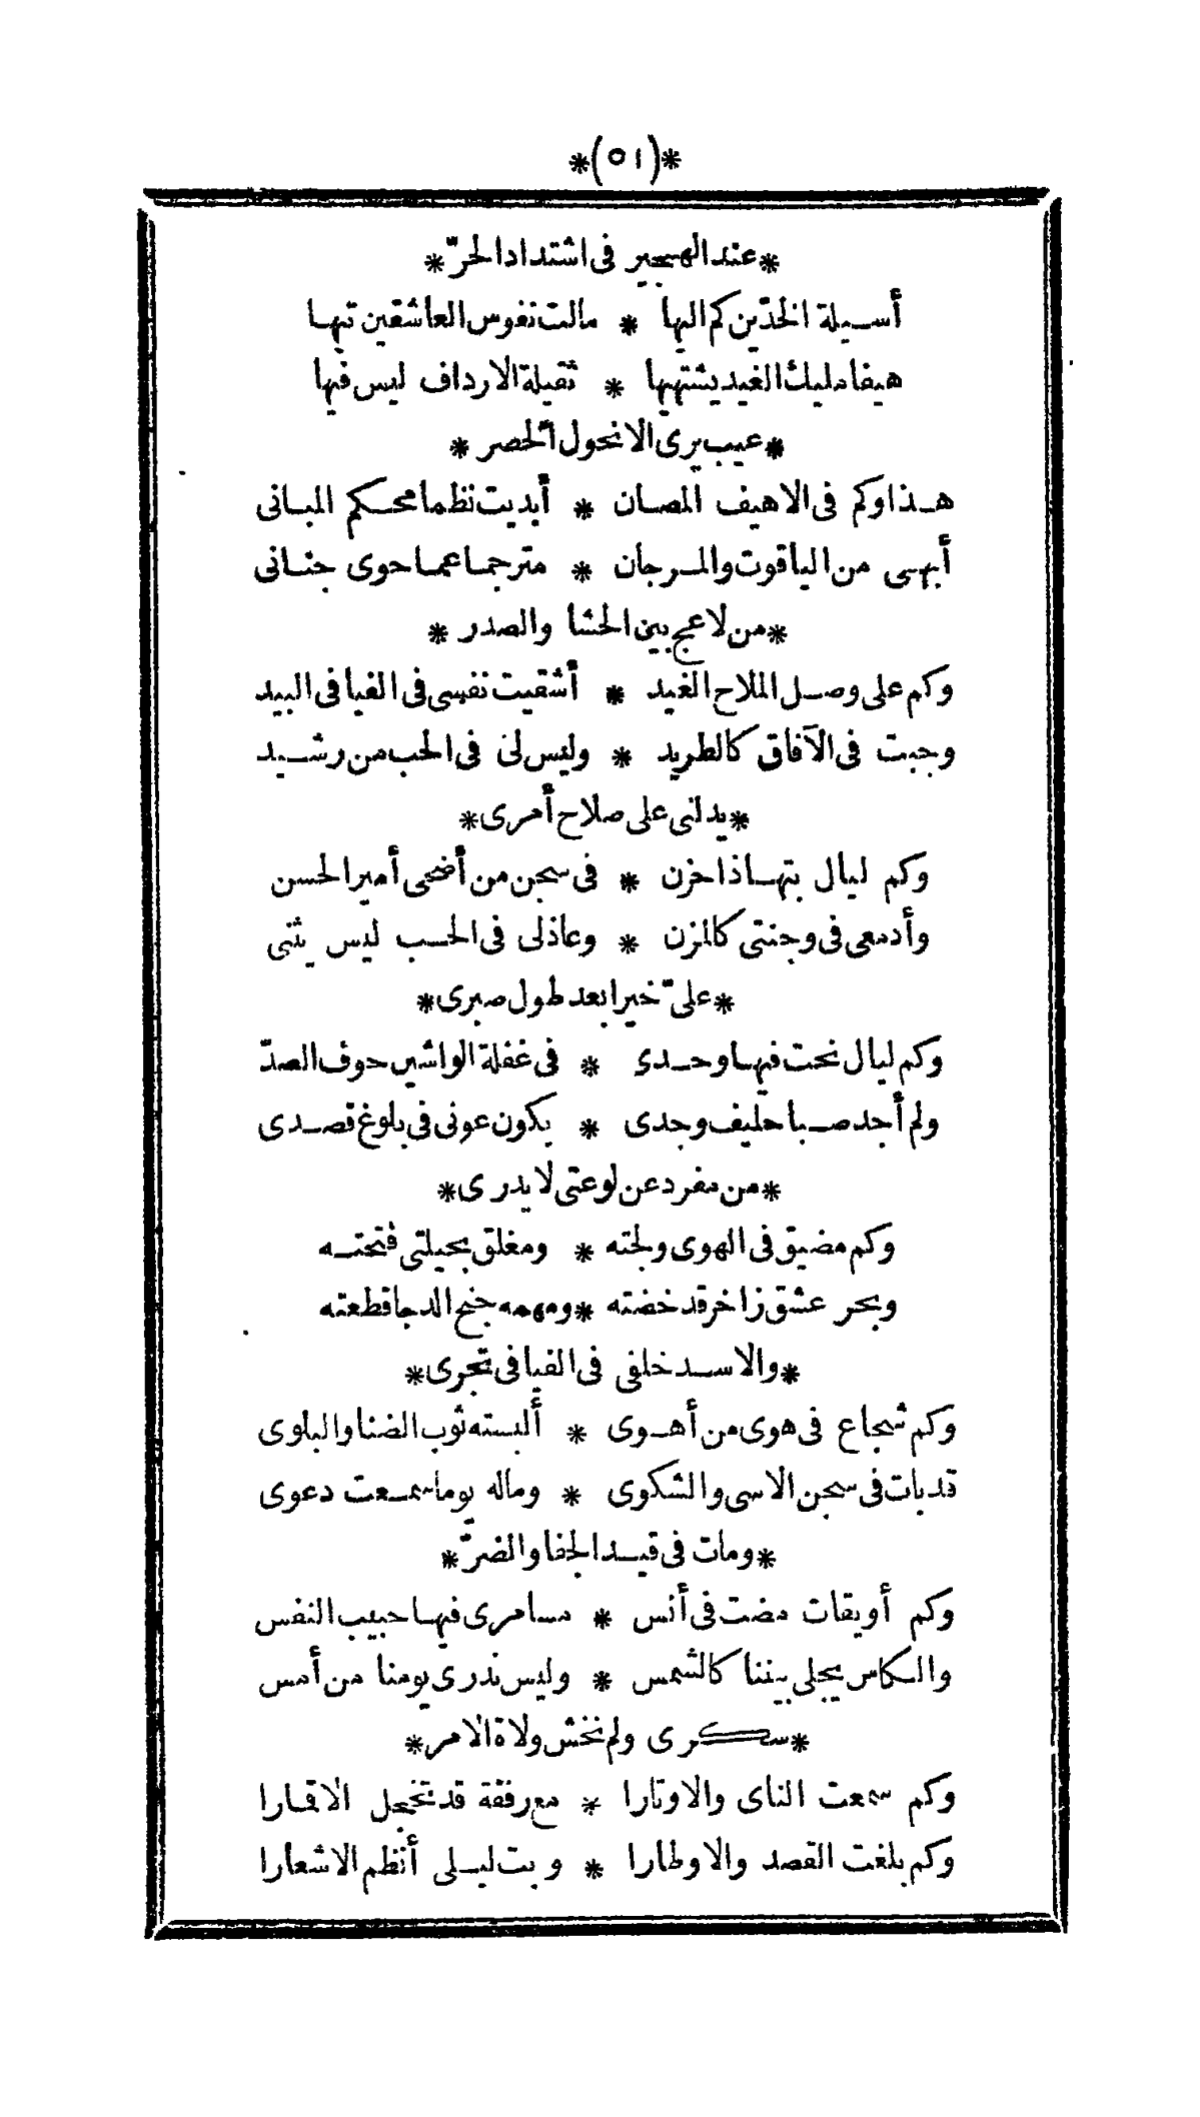 *(٥١)*
*عند الهجير فى اشتداد الحرّ*
أسيلة الخدّين كم اليها * مالت نفوس العاشقين تيها
هيفا مليك الغيد يشتهيها * ثقيلة الارداف ليس فيها
*عيب يرى الا نحول الخصر*
هذا وكم فى الاهيف المصان * أبديت نظما محكم المبانى
أبهى من الياقوت والمرجان * مترجما عما حوى جنانى
*من لاعج بين الحشا والصدر*
وكم على وصل الملاح الغيد * أشقيت نفسى فى الفيافى البيد
وجبت فى الآفاق كالطريد * وليس لى فى الحب من رشيد
*يدلنى على صلاح أمرى*
وكم ليال بتها ذا حزن * فى سجن من أضحى أمير الحسن
وأدمعى فى وجنتى كالمزن * وعاذلى فى الحب ليس يثنى
*علىّ خيرا بعد طول صبرى*
وكم ليال نحت فيها وحدى * فى غفلة الواشين خوف الصدّ
ولم أجد صبا حليف وجدى * يكون عونى فى بلوغ قصدى
*من مفرد عن لوعتى لا يدرى*
وكم مضيق فى الهوى ولجته * ومغلق بحيلتى فتحته
وبحر عشق زاخر قد خضته * ومهمه جنح الدجا قطعته
*والاسد خلفى فى الفيافى تجرى*
وكم شجاع فى هوى من أهوى * ألبسته ثوب الضنا والبلوى
قد بات فى سجن الاسى والشكوى * وماله يوما سمعت دعوى
*ومات فى قيد الجفا والضرّ*
وكم أويقات مضت فى أنس * مسامرى فيها حبيب النفس
والكاس يجلى بيننا كالشمس * وليس ندرى يومنا من أمس
*سكرى ولم نخش ولاة الامر*
وكم سمعت الناى والاوتارا * مع رفقة قد تخجل الاقمارا
وكم بلغت القصد والاوطارا * وبت ليلى أنظم الاشعارا